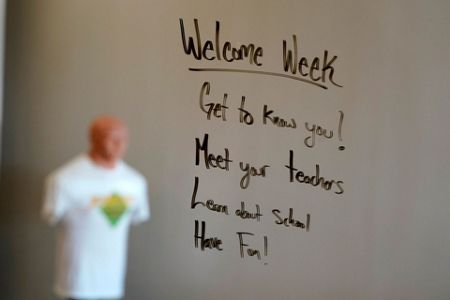 Welcome Week
Get to know you!
Meet your teachers
Learn about School
Have Fun!